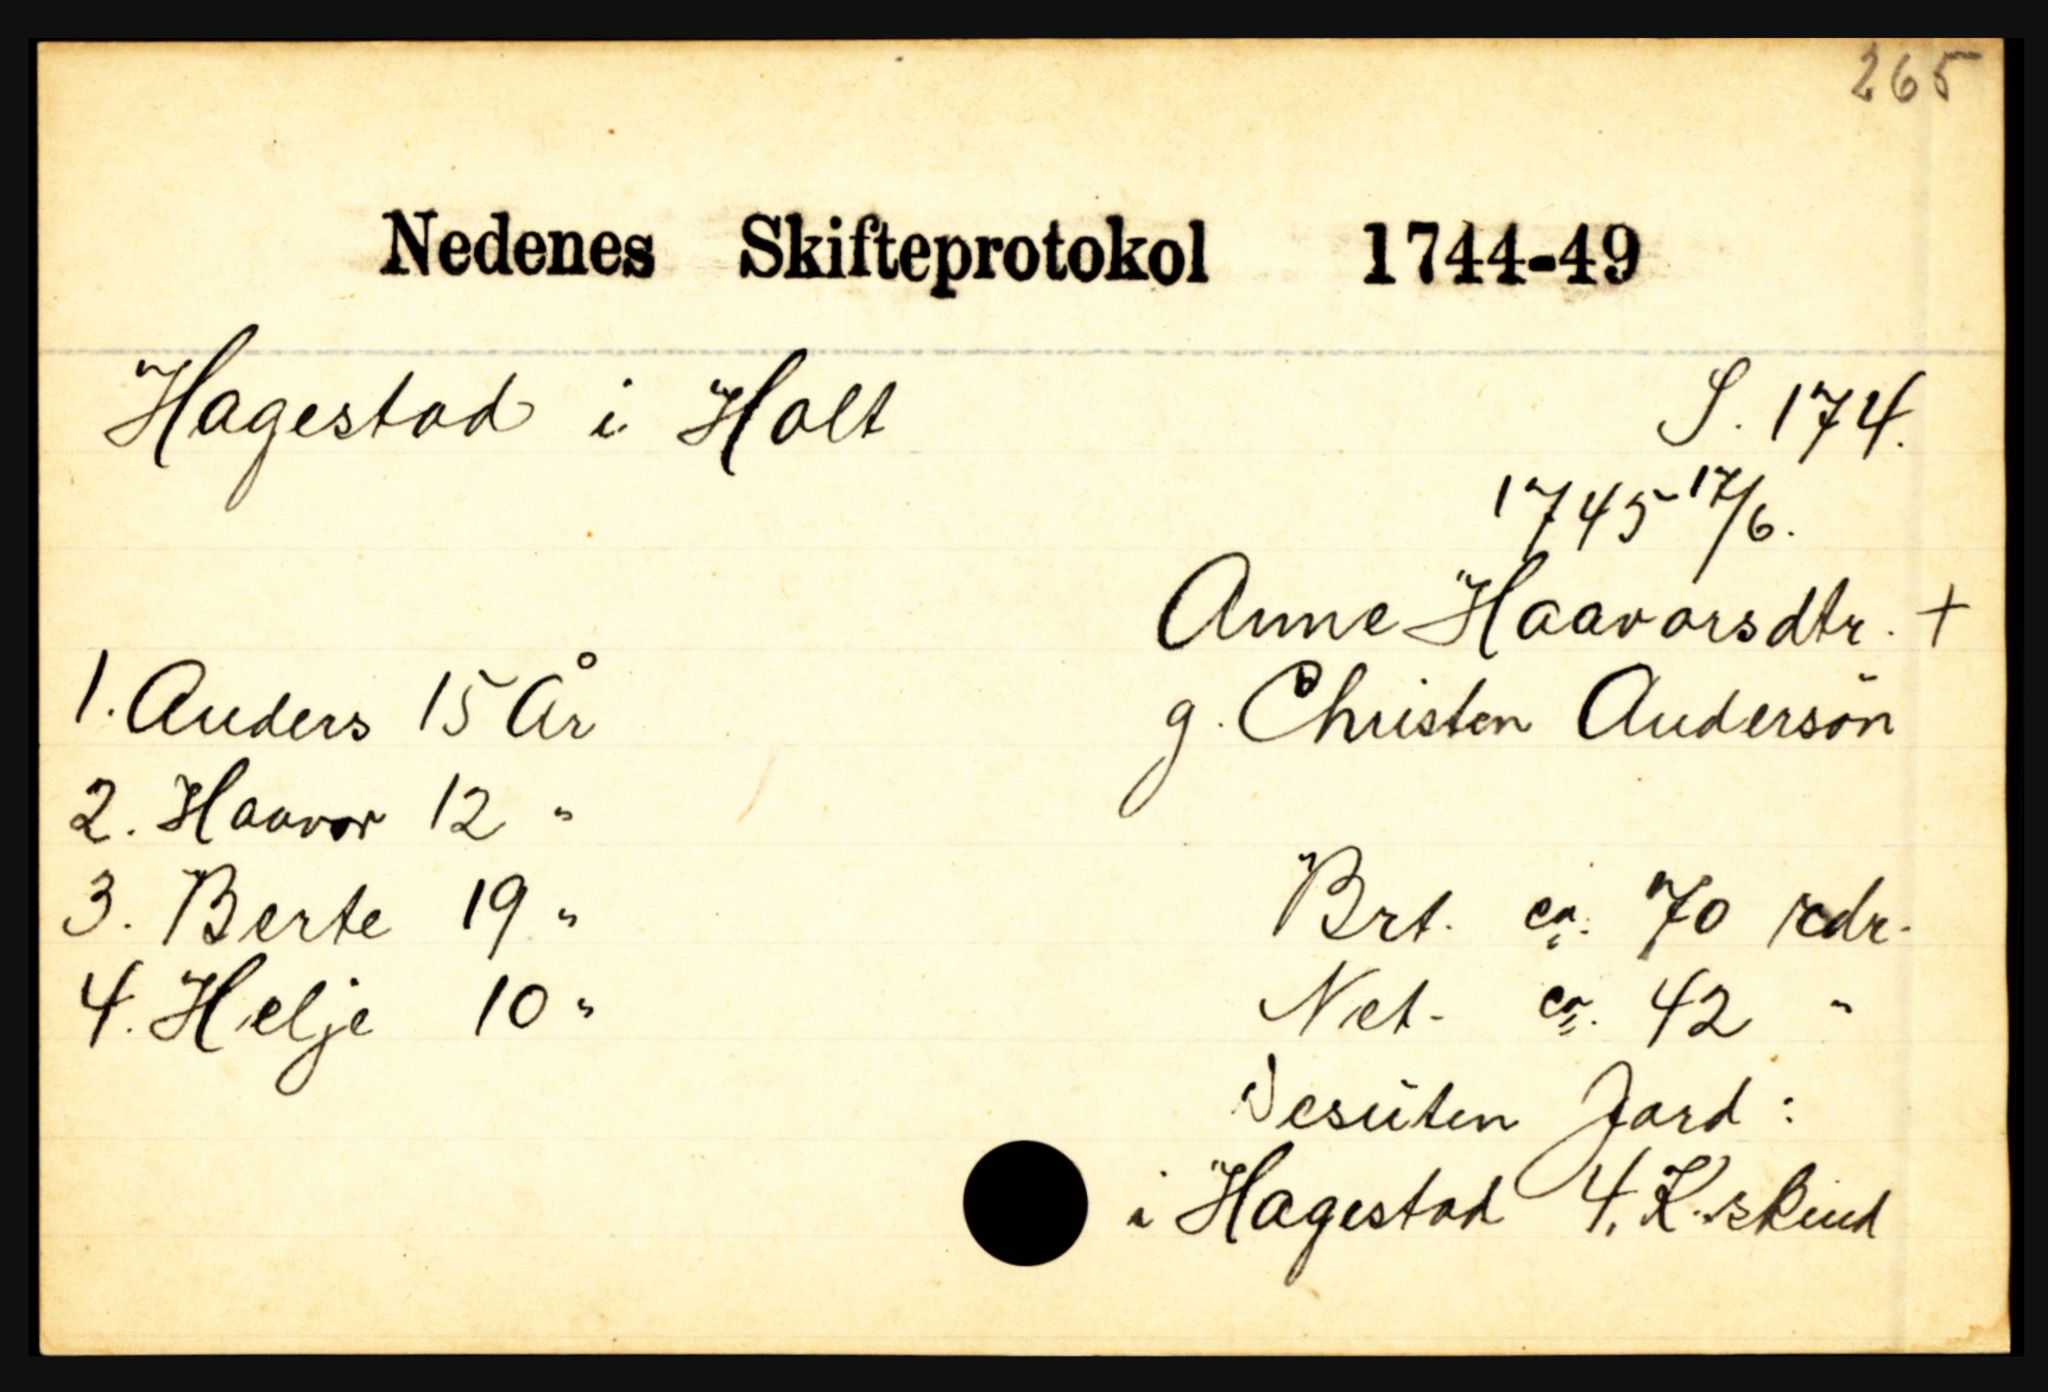 265
Nedenes Skifteprotokol 1744-49
Hagestad i Holt
S. 174.
1745 17/6.
Anne Haavorsdtr. +
g. Christen Andersön
1. Anders 15 År
2. Haavor 12 "
3. Berte 19 "
4. Helje 10 "
Brt. ca. 70 rdr.
Net. ca. 42 "
Desuten Jord:
i Hagestad 4 K.skind